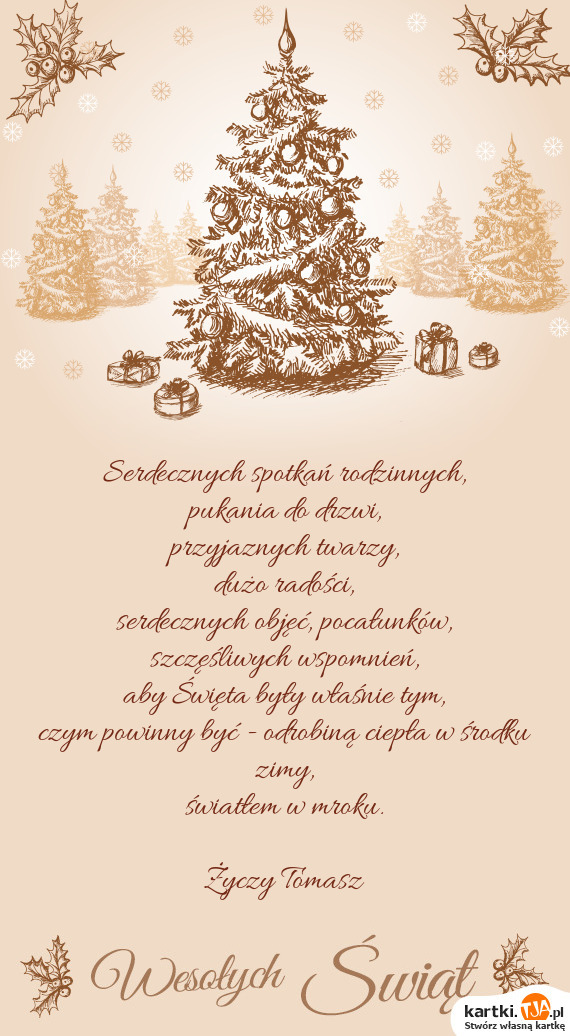 Serdecznych spotkań rodzinnych,
pukania do drzwi,
przyjaznych twarzy,
dużo radości,
serdecznych objęć, pocałunków,
szczęśliwych wspomnień,
aby Święta były właśnie tym,
czym powinny być - odrobiną ciepła w środku
zimy,
światłem w mroku.
Życzy Tomasz
Wesołych Świąt
kartki.TJA.pl
Stwórz własną kartkę